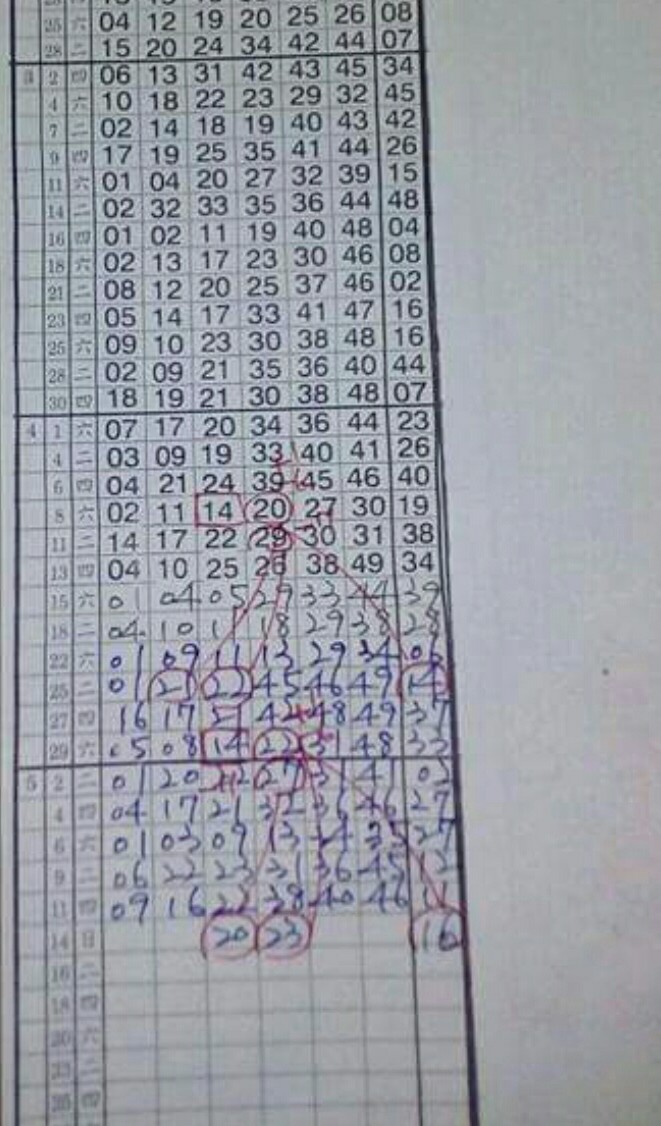 25 六 04 12 19 20 25 26 08
28 二 15 20 24 34 42 44 07
3 2 四 06 13 31 42 43 45 34
4 六 10 18 22 23 29 32 45
7 二 02 14 18 19 40 43 42
9 四 17 19 25 35 41 44 26
11 六 01 04 20 27 32 39 15
14 二 02 32 33 35 36 44 48
16 四 01 02 11 19 40 48 04
18 六 02 13 17 23 30 46 08
21 二 08 12 20 25 37 46 02
23 四 05 14 17 33 41 47 16
25 六 09 10 23 30 38 48 16
28 二 02 09 21 35 36 40 44
30 四 18 19 21 30 38 48 07
4 1 六 07 17 20 34 36 44 23
4 二 03 09 19 33 40 41 26
6 四 04 21 24 39 45 46 40
8 六 02 11 14 20 27 30 19
11 二 14 17 22 29 30 31 38
13 四 04 10 25 26 38 49 34
15 六 01 04 05 29 33 44 39
18 二 04 10 18 29 38 28
22 六 01 09 11 13 29 34 06
25 二 01 21 22 45 46 49 14
27 四 16 17 21 42 48 49 37
29 六 05 08 14 22 31 48 33
5 2 二 01 20 22 27 41
4 四 04 17 21 32 36 46 27
6 六 01 03 09 13 27
9 二 06 22 23 31 36 45
11 四 09 16 22 38 40 46 11
14 日 20 23 16
16 二
18 四
20 六
23 二
25 四